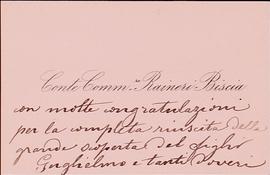 Conte Comm.re Raineri-Biscia
con molte congratulazioni
per la completa riuscita della
grande scoperta del figlio
Guglielmo e tanti doveri